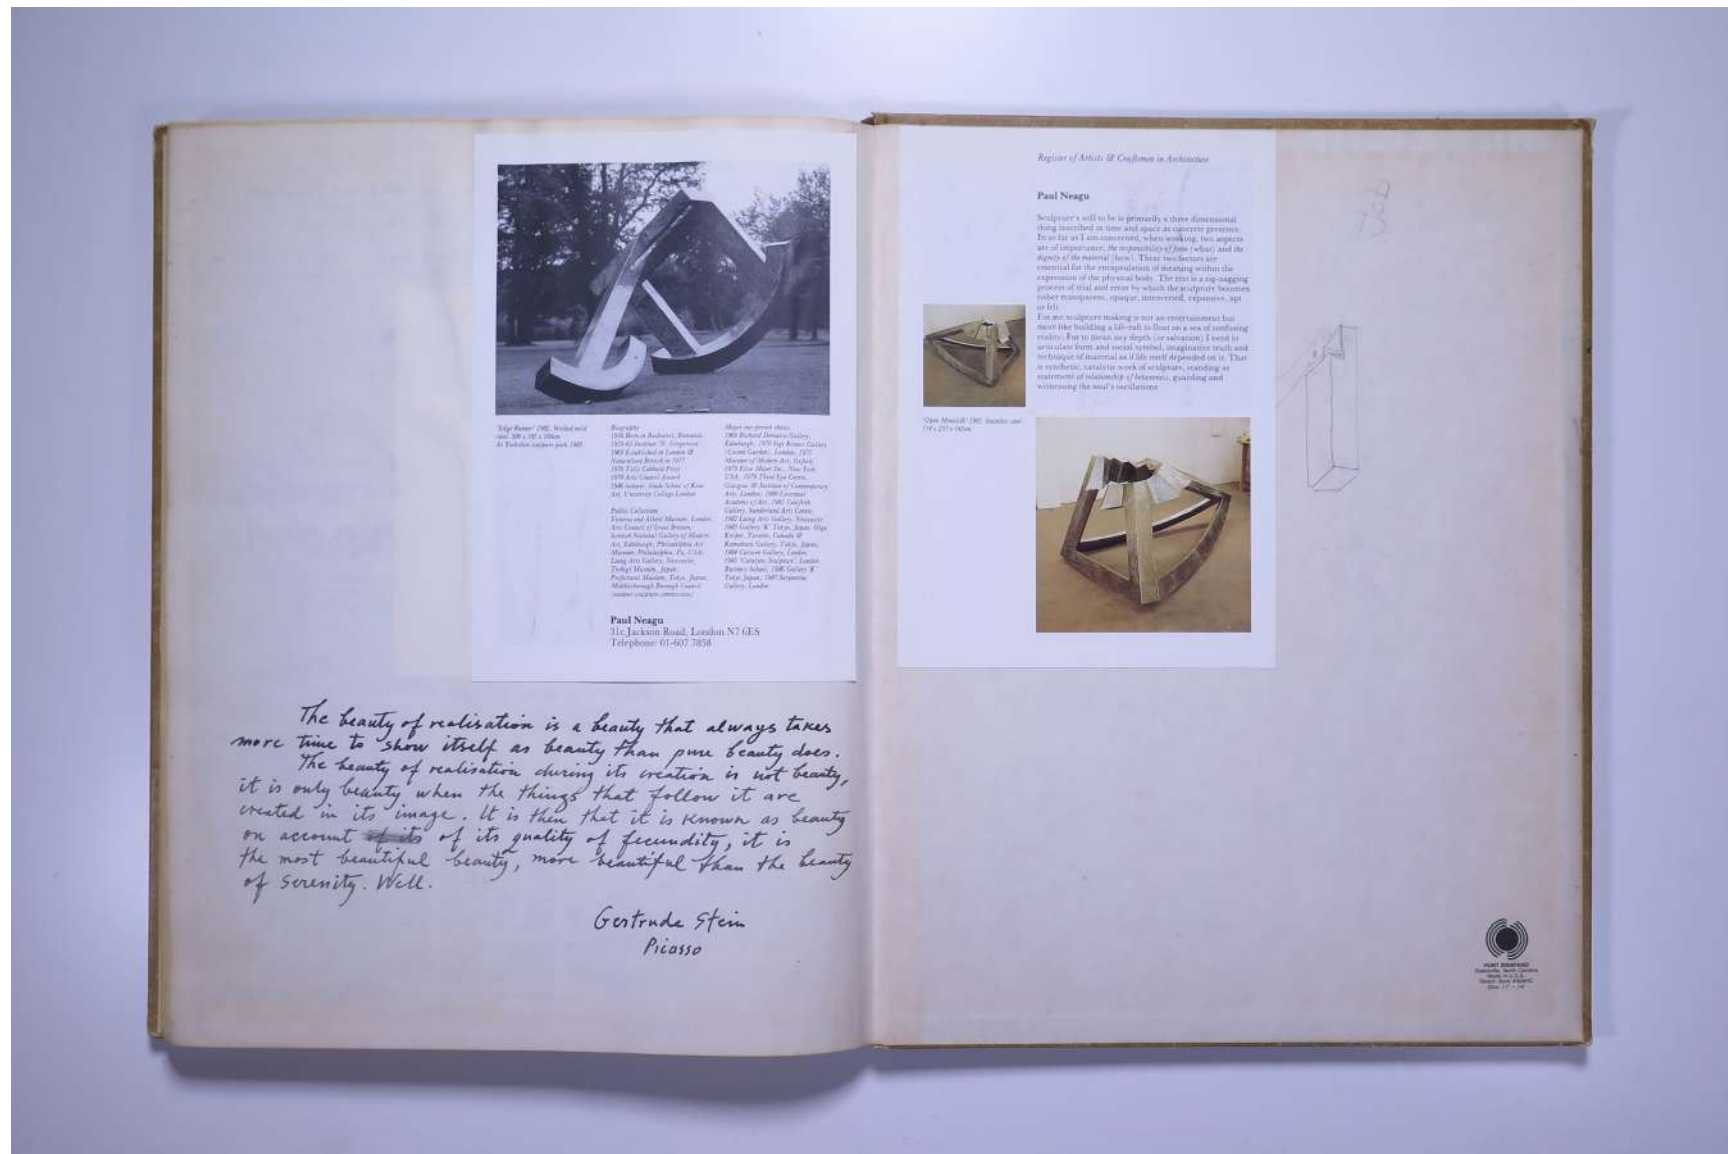 'Edge Runner' 1982. Welded mild
steel.
At Yorkshire sculpture park 1983
Biography
1938 Born in Bucharest, Romania.
1969 Established in London &
Naturalised British in 1977
1976 Tolly Cobbold Prize
1978 Arts Council Award
1986 lecturer, Slade School of Fine
Art, University College London
Public Collections
Victoria and Albert Museum, London,
Arts Council of Great Britain,
Scottish National Gallery of Modern
Art, Edinburgh, Philadelphia Art
Museum, Philadelphia, Pa. USA,
Laing Arts Gallery, Newcastle,
Museum, Japan,
Prefectural Museum, Tokyo, Japan,
Middlesbrough Borough Council
(outdoor sculpture commission)
Major one-person shows
1969 Richard Demarco Gallery,
Edinburgh, Gallery
(Covent Garden), London, 1975
Museum of Modern Art, Oxford,
New York,
USA, 1979 Third Eye Centre,
Glasgow & Institute of Contemporary
Arts, London, Liverpool
Academy of Art,
Gallery, Sunderland Arts Centre,
1982 Laing Arts Gallery, Newcastle,
1983 Gallery 'K' Tokyo, Japan, Olga
Korper, Toronto, Canada &
Kamakura Gallery, Tokyo, Japan,
1984 Curwen Gallery, London,
1985 'Catalytic Sculpture', London
Business School, 1986 Gallery 'K'
Tokyo, Japan, 1987 Serpentine
Gallery, London
Paul Neagu
31c Jackson Road, London N7 6ES
Telephone: 01-607 7858
The beauty of realisation is a beauty that always takes
more time to show itself as beauty than pure beauty does.
The beauty of realisation during its creation is not beauty,
it is only beauty when the things that follow it are
created in its image. It is then that it is known as beauty
on account of its of its quality of fecundity, it is
the most beautiful beauty, more beautiful than the beauty
of serenity. Well.
Gertrude Stein
Picasso
Register of Artists & Craftsmen in Architecture
Paul Neagu
Sculpture's will to be is primarily a three dimensional
thing inscribed in time and space as concrete presence.
In so far as I am concerned, when working, two aspects
are of importance; the responsibility of form (what) and the
dignity of the material (how). These two factors are
essential for the encapsulation of meaning within the
expression of the physical body. The rest is a zig-zagging
process of trial and error by which the sculpture becomes
either transparent, opaque, introverted, expansive, apt
or felt.
For me sculpture making is not an entertainment but
more like building a life-raft to float on a sea of confusing
reality. For to mean any depth (or salvation) I need to
articulate form and social symbol, imaginative truth and
technique of material as if life itself depended on it. That
is synthetic, catalytic work of sculpture, standing as
statement of relationship of betweeness, guarding and
witnessing the soul's oscillations.
'Open Monolith' Stainless steel
HUNT
Statesville, North Carolina
Made in U.S.A.
Sketch Book
Size: 11" × 14"